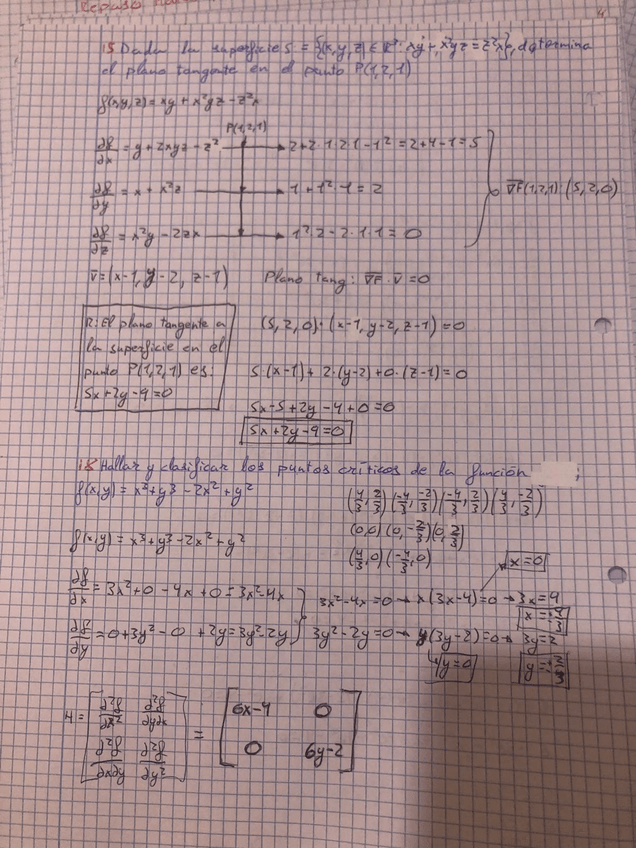 Repaso
15 Dada la superficie S = {(x,y,z) ∈ R³: xy + x²yz = z²x}, determina
el plano tangente en el punto P(1,2,1)
f(x,y,z) = xy + x²yz - z²x
P(1,2,1)
∂f/∂x = y + 2xyz - z² → 2+2·1·2·1-1² = 2+4-1=5
∂f/∂y = x + x²z → 1+1²·1 = 2
∇F(1,2,1): (5,2,0)
∂f/∂z = x²y - 2zx → 1²·2-2·1·1 = 0
v̅ = (x-1, y-2, z-1) Plano tang: ∇F · v̅ = 0
R: El plano tangente a
la superficie en el
punto P(1,2,1) es:
5x+2y-9=0
(5,2,0)·(x-1, y-2, z-1) = 0
5·(x-1)+2·(y-2)+0·(z-1)=0
5x-5+2y-4+0=0
5x+2y-9=0
18 Hallar y clasificar los puntos críticos de la función ;
f(x,y) = x³+y³-2x²+y²
(4/3, 2/3) (-4/3, -2/3) (-4/3, 2/3) (4/3, -2/3)
(0,0) (0, -2/3) (0, 2/3)
(4/3, 0) (-4/3, 0)
f(x,y) = x³+y³-2x²+y²
x=0
∂f/∂x = 3x²+0-4x+0 = 3x²-4x } 3x²-4x=0 → x(3x-4)=0 → 3x=4
x=±4/3
∂f/∂y = 0+3y²-0+2y = 3y²-2y } 3y²-2y=0 → y(3y-2)=0 → 3y=2
y=0 y=±2/3
H = [∂²f/∂x² ∂²f/∂y∂x] = [6x-4 0]
[∂²f/∂x∂y ∂²f/∂y²] [0 6y-2]